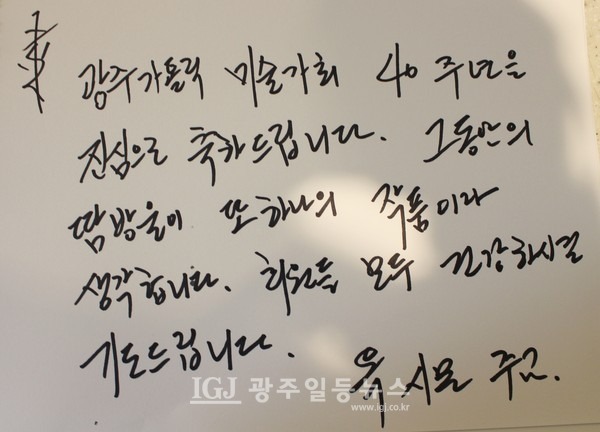 광주가톨릭 미술가회 40주년을
진심으로 축하드립니다. 그동안의
땀방울이 또 하나의 작품이라
생각합니다. 회원들 모두 건강하시길
기도드립니다.
옥 시몬 주교.
IGJ 광주일등뉴스
www.igj.co.kr